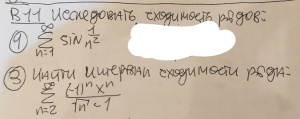 В11 Исследовать сходимость рядов:
① ∞ Σ n=1 sin 1/n²
③ Найти интервал сходимости ряда:
∞ Σ n=2 (-1)ⁿ xⁿ / √n - 1